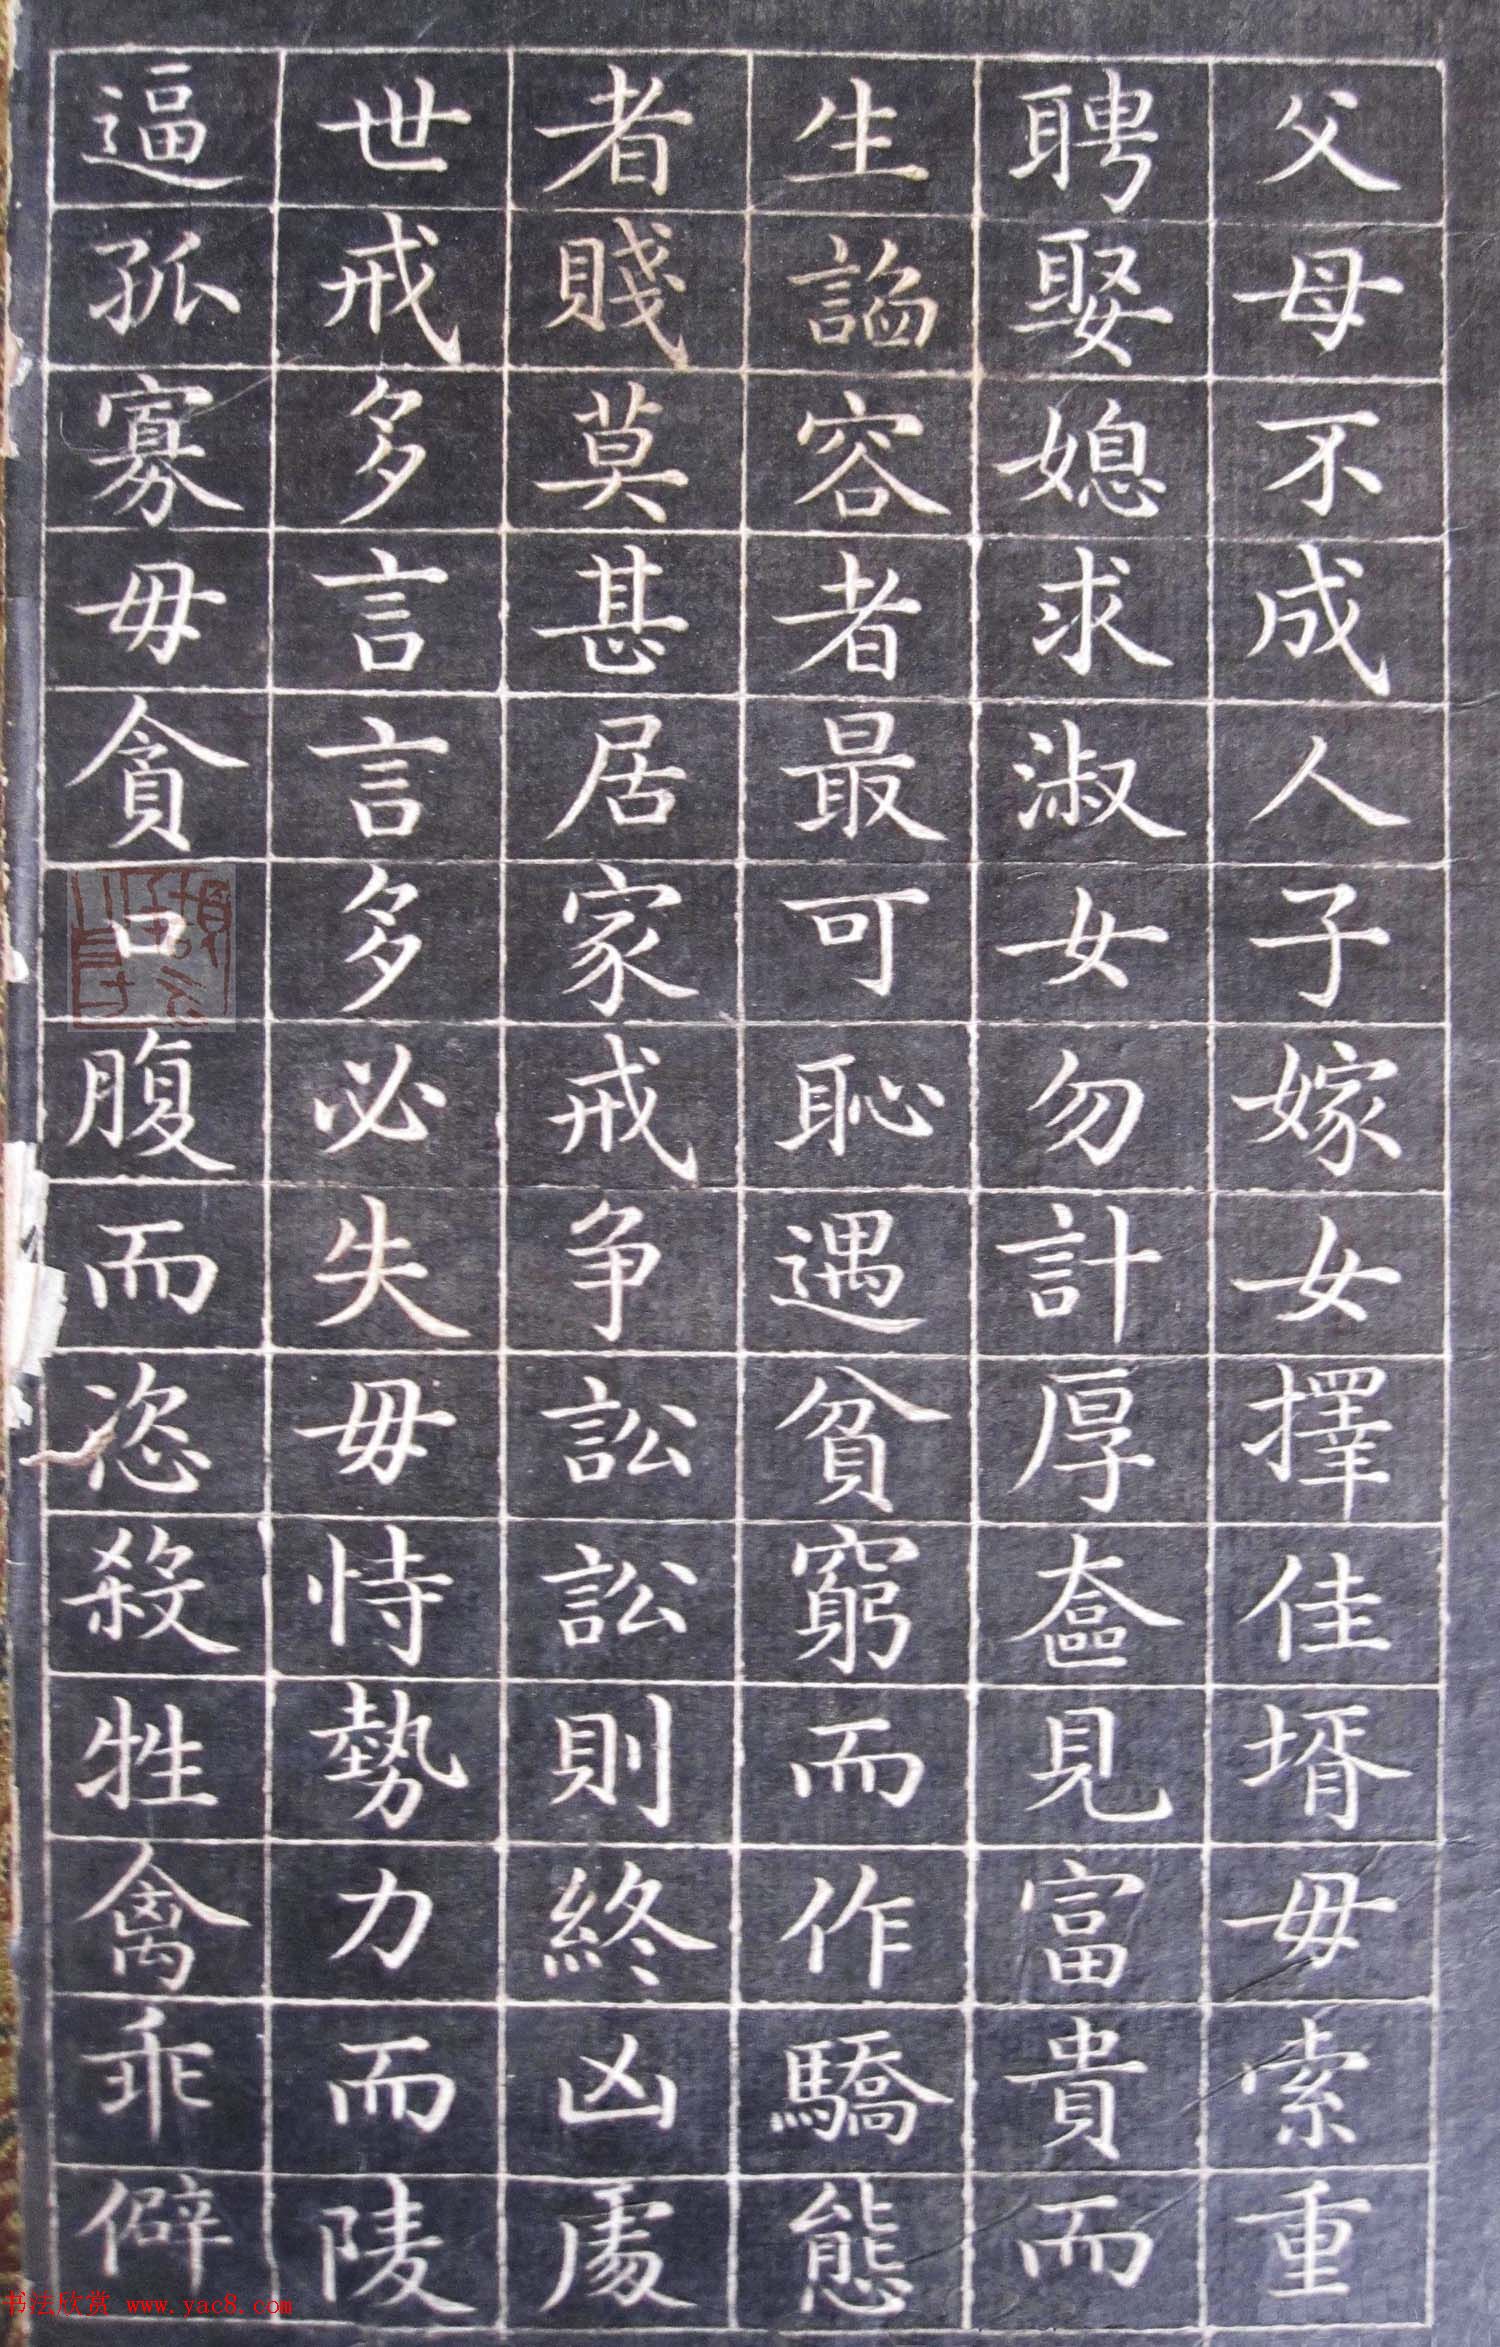 父母不成人子嫁女擇佳壻毋索重
聘娶媳求淑女勿計厚奩見富貴而
生謟容者最可恥遇貧窮而作驕態
者賤莫甚居家戒争訟訟則終凶處
世戒多言言多必失毋恃勢力而陵
逼孤寡毋貪口腹而恣殺牲禽乖僻
书法欣赏 www.yac8.com